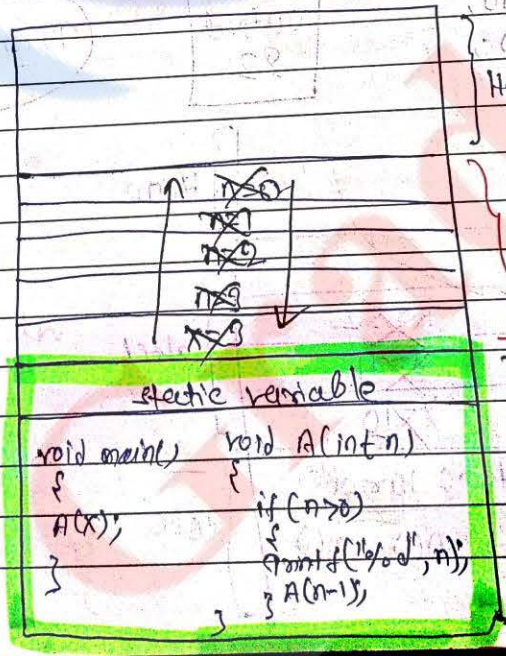 H
n=0
n=1
n=2
n=3
x=3
static variable
void main() void A(int n)
{ {
A(x); if (n>0)
{
} printf("%d", n);
A(n-1);
} }